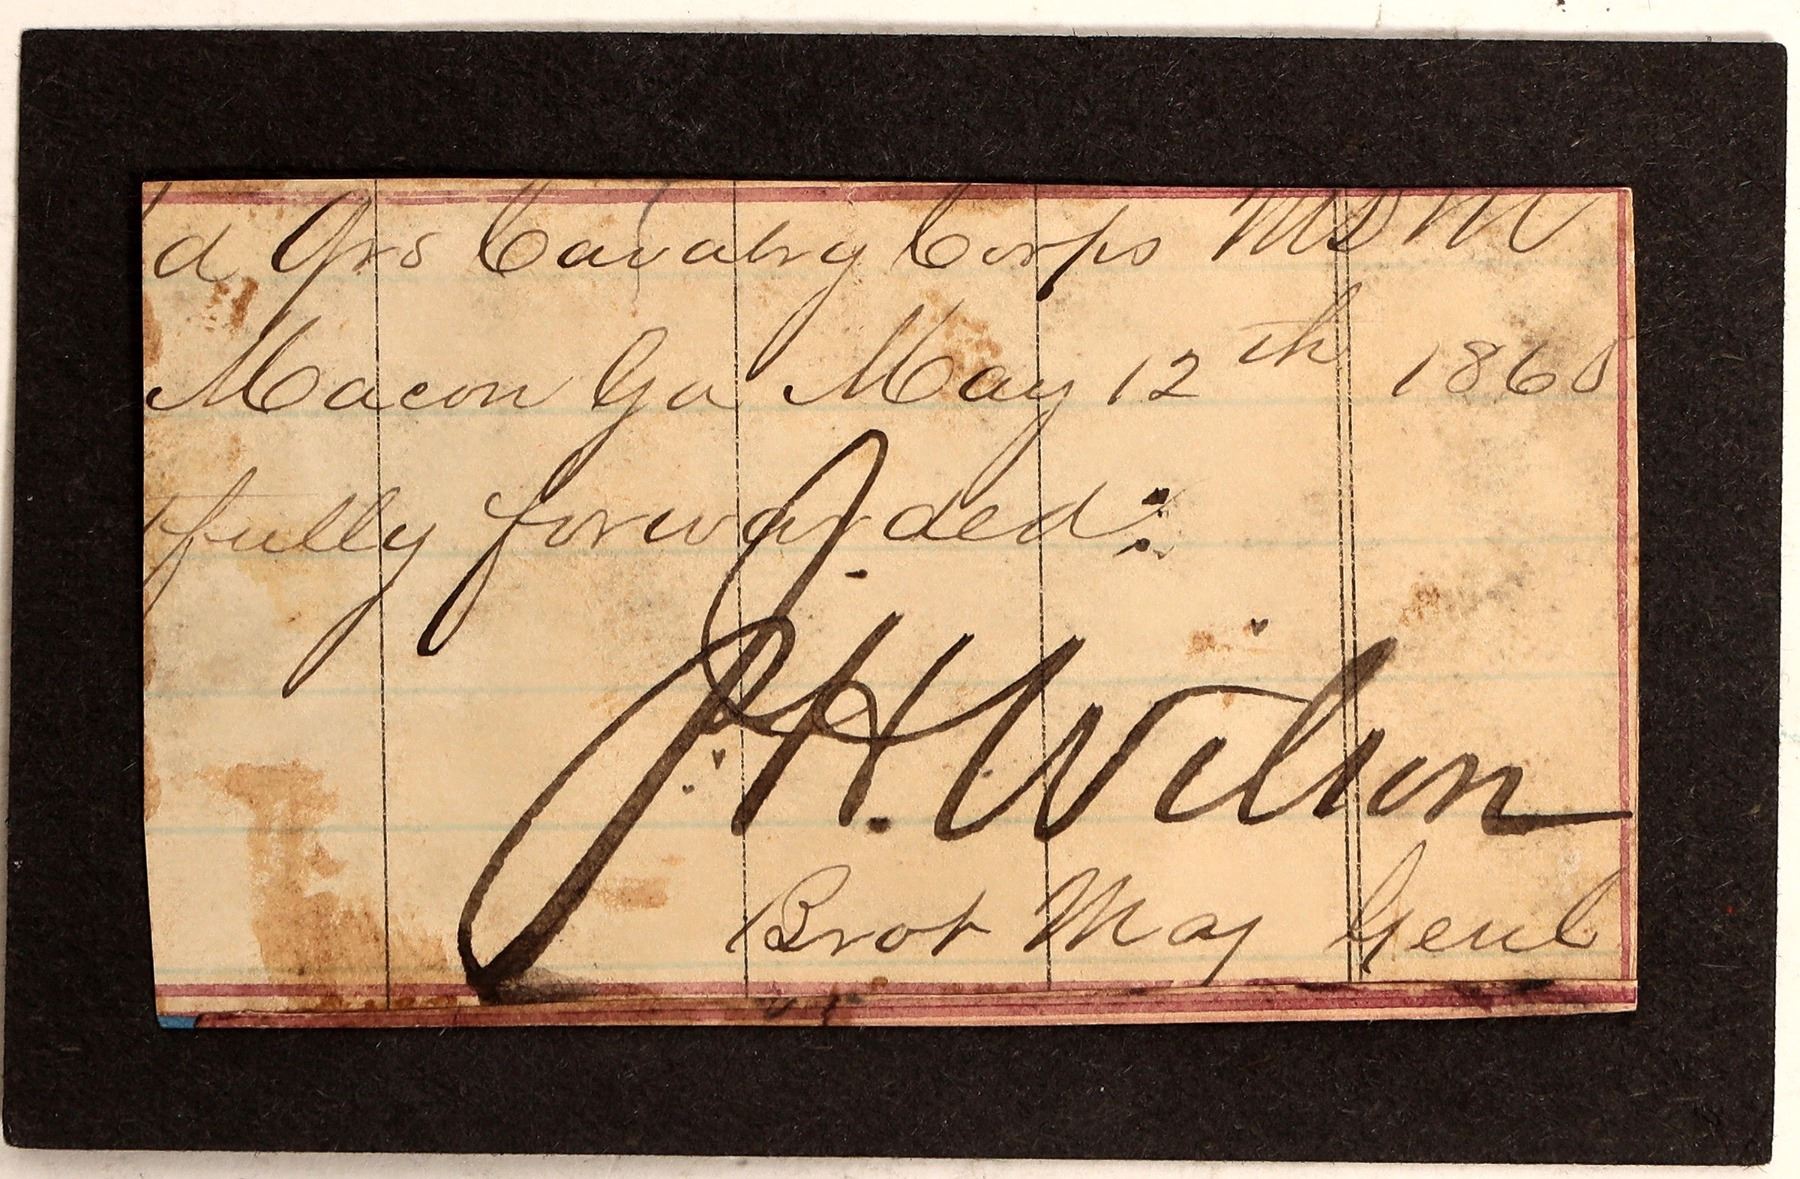 d Qrs Cavalry Corps M D M
Macon Ga May 12th 1865
tfully forwarded:
J. H. Wilson
Brvt Maj Genl